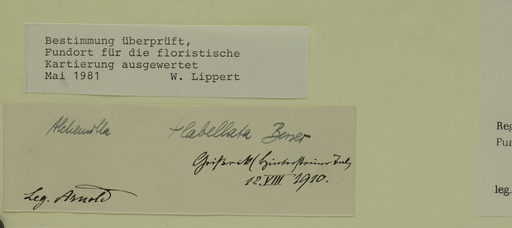 Bestimmung überprüft,
Fundort für die floristische
Kartierung ausgewertet
Mai 1981 W. Lippert
Alchemilla flabellata Beser
12.VIII 1910.
Leg. Arnold
Reg
Fun
leg.